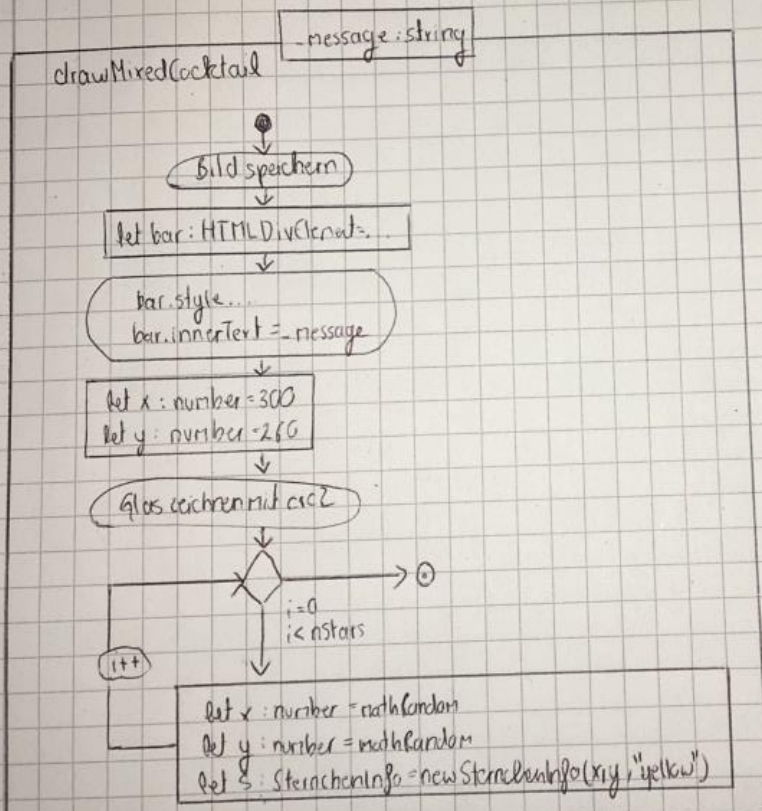 _message : string
drawMixedCocktail
Bild speichern
let bar : HTMLDivElement=...
bar.style...
bar.innerText = _message
let x : number = 300
let y : number = 260
Glas zeichnen mit crc2
i=0
i< nStars
i++
let x : number = mathRandom
let y : number = mathRandom
let s : SternchenInfo = new SternchenInfo(x,y,"yellow")